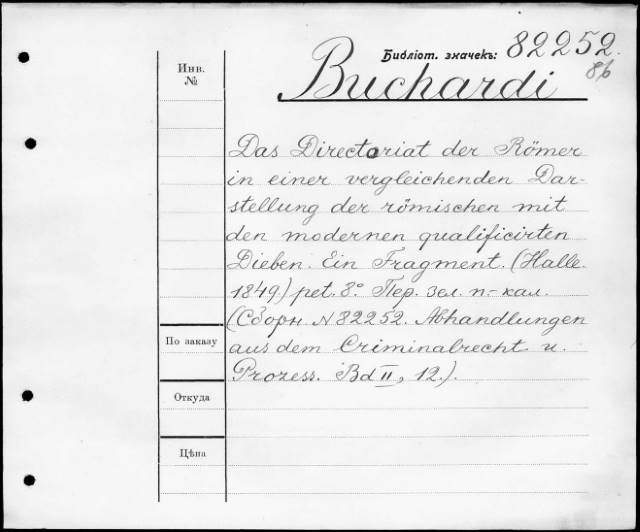 Библіот. значекъ: 82252.
8/6
Инв.
№
Buchardi
Das Directoriat der Römer
in einer vergleichenden Dar-
stellung der römischen mit
den modernen qualificirten
Dieben. Ein Fragment. (Halle.
1849) pet. 8º Пер. зел. п-кал.
(Сборн. N 82252. Abhandlungen
aus dem Criminalrecht u.
Prozess. Bd II, 12.).
По заказу
Откуда
Цѣна